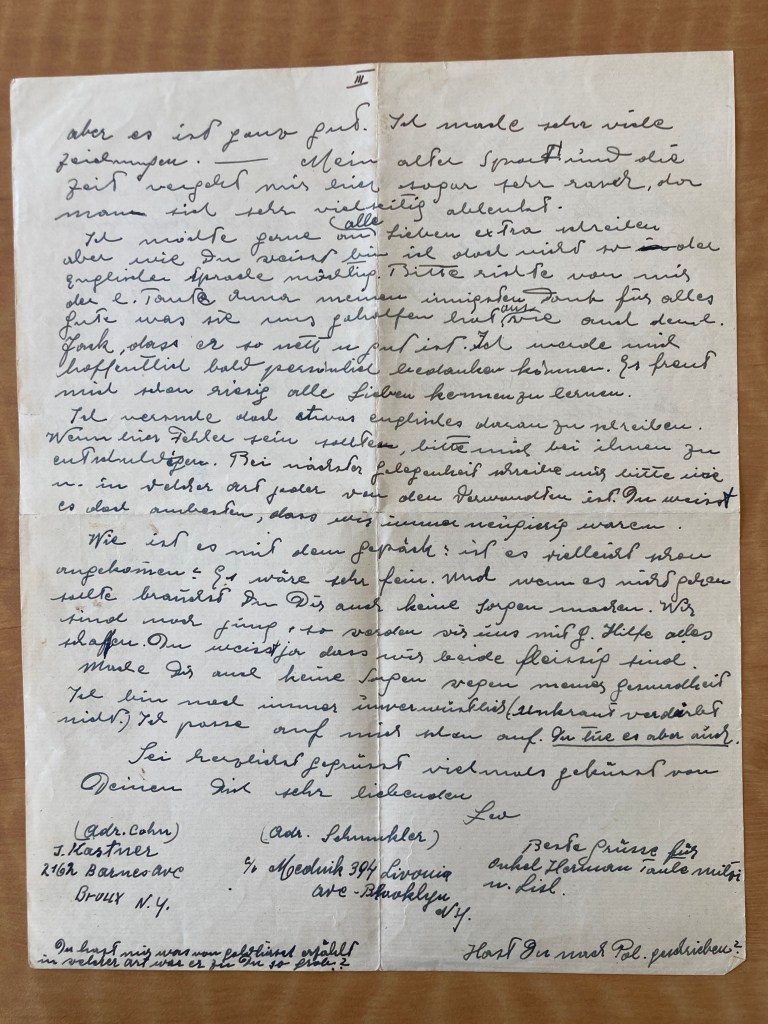 III
aber es ist ganz gut. Ich mache sehr viele
zeichnungen. — Mein alter Sport und die
zeit vergeht mir hier sogar sehr rasch, da
man sich sehr vielseitig ablenkt.
Ich möchte gerne an alle Lieben extra schreiben
aber wie Du weisst bin ich doch nicht so der
Englischen Sprache mächtig. Bitte richte von mir
der l. Tante Anna meinen innigsten Dank für alles
gute was sie uns geholfen hat, wie auch dem l.
Jack, dass er so nett u gut ist. Ich werde mich
hoffentlich bald persönlich bedanken können. Es freut
mich schon riesig alle Lieben kennen zu lernen.
Ich versuche doch etwas englisches daran zu schreiben.
Wenn hier Fehler sein sollten, bitte mich bei ihnen zu
entschuldigen. Bei nächster gelegenheit schreibe mir bitte wie
u. in welcher Art jeder von den Verwandten ist. Du weisst
es doch ambesten, dass wir immer neugierig waren.
Wie ist es mit dem gepäck? ist es vielleicht schon
angekomen? Es wäre sehr fein. Und wenn es nicht gehen
sollte brauchst Du Dir auch keine Sorgen machen. Wir
sind noch jung, so werden wir uns mit g. Hilfe alles
schaffen. Du weisst ja dass wir beide fleissig sind.
Mache Dir auch keine Sorgen wegen meiner gesundheit
Ich bin noch immer unverwüstlich (Unkraut verdirbt
nicht.) Ich passe auf mich schon auf. Du tue es aber auch.
Sei herzlichst gegrüsst vielmals geküsst von
Deinen Dich sehr liebenden
Leo
(Adr. Cohn)
J. Kastner
2162 Barnes Ave
Bronx N.Y.
(Adr. Schmukler)
c/o Mednik 394 Livonia
Ave - Brooklyn
N.Y.
Beste Grüsse für
Onkel Herman Tante Mitzi
u. Lisl.
Du hast mir was von erzählt
in welcher Art war er zu Du so grob?
Hast Du nach Pol. geschrieben?